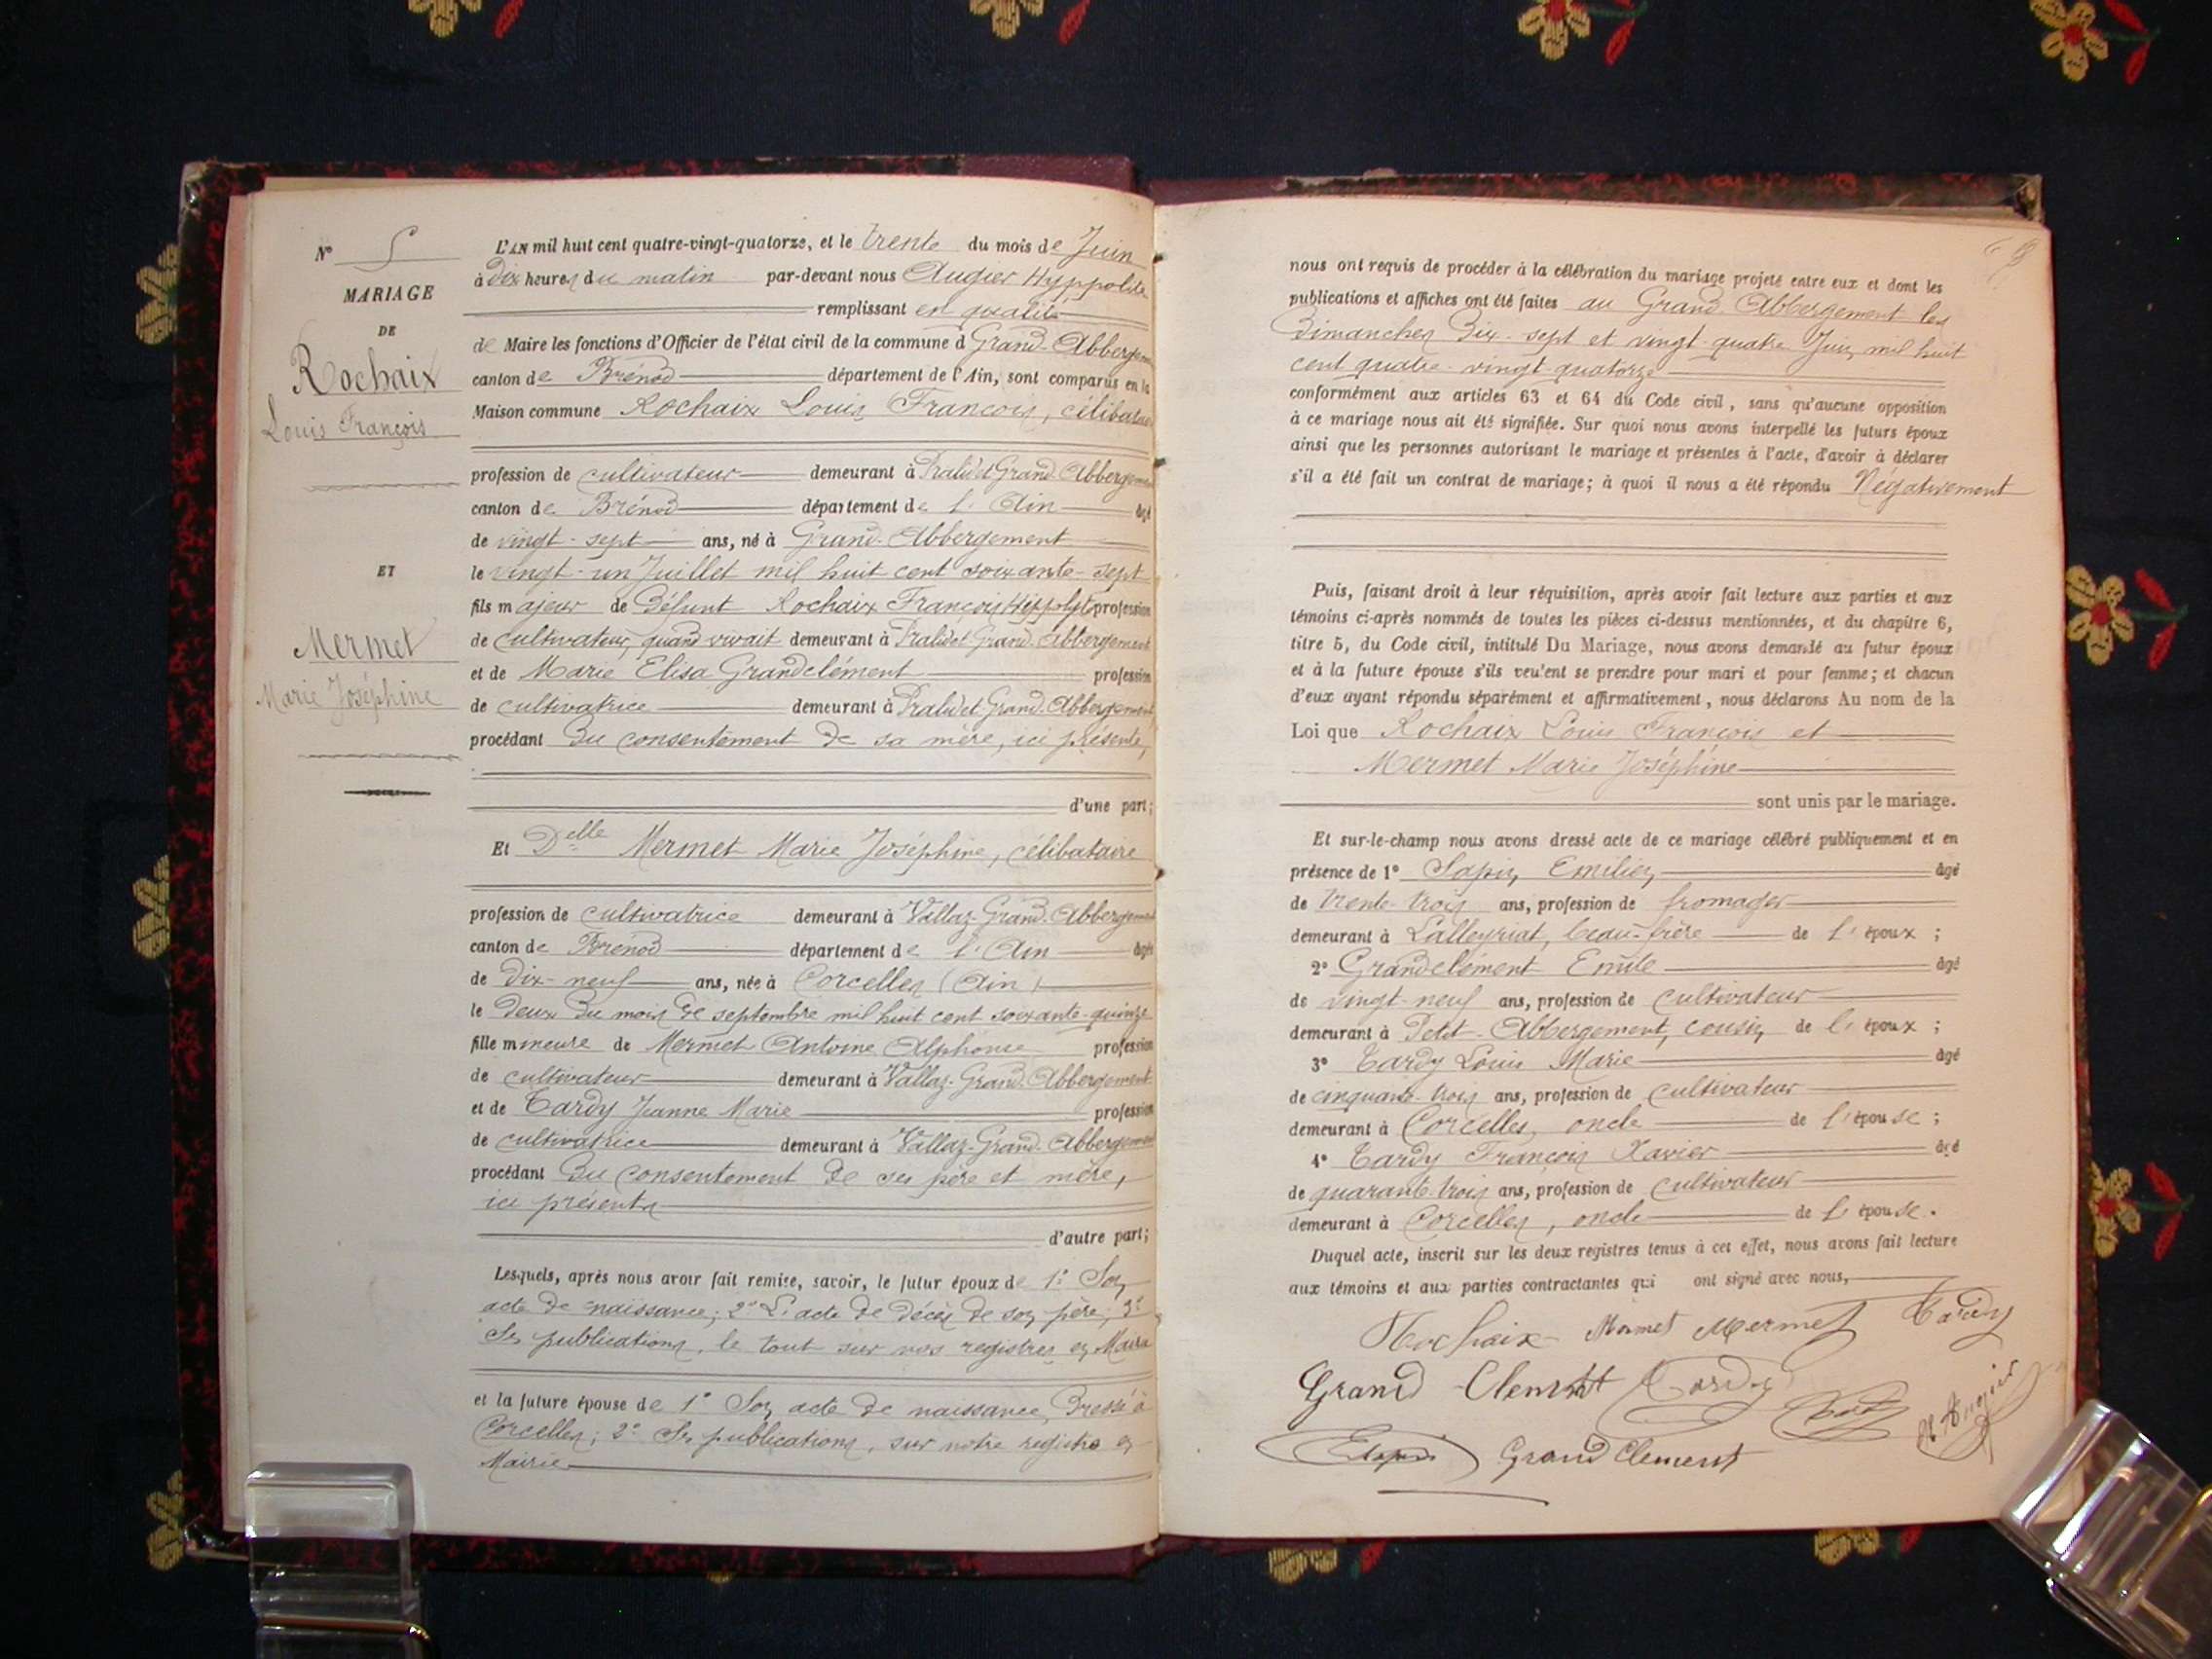 N° 5
MARIAGE
DE
Rochaix
Louis François
ET
Mermet
Marie Joséphine
L'AN mil huit cent quatre-vingt-quatorze, et le trente du mois de Juin
à dix heures du matin par-devant nous Augier Hyppolite
remplissant en qualité
de Maire les fonctions d'Officier de l'état civil de la commune d Grand-Abbergement
canton de Brénod département de l'Ain, sont comparus en la
Maison commune Rochaix Louis François, célibataire
profession de cultivateur demeurant à Pralidet Grand-Abbergement
canton de Brénod département de l'Ain âgé
de vingt-sept ans, né à Grand-Abbergement
le vingt-un Juillet mil huit cent soixante-sept
fils majeur de Défunt Rochaix François Hyppolyte profession
de cultivateur, quand vivait demeurant à Pralidet Grand-Abbergement
et de Marie Elisa Grandclément profession
de cultivatrice demeurant à Pralidet Grand-Abbergement
procédant du consentement de sa mère, ici présente,
d'une part;
Et Delle Mermet Marie Joséphine, célibataire
profession de cultivatrice demeurant à Vallaz-Grand-Abbergement
canton de Brénod département de l'Ain âgée
de dix-neuf ans, née à Corcelles (Ain)
le deux du mois de septembre mil huit cent soixante-quinze
fille mineure de Mermet Antoine Alphonse profession
de cultivateur demeurant à Vallaz-Grand-Abbergement
et de Tardy Jeanne Marie profession
de cultivatrice demeurant à Vallaz-Grand-Abbergement
procédant du consentement de ses père et mère,
ici présents
d'autre part;
Lesquels, après nous avoir fait remise, savoir, le futur époux de 1° Son
acte de naissance; 2° L'acte de décès de son père; 3°
Ses publications, le tout sur nos registres en Mairie
et la future épouse de 1° Son acte de naissance, Dressé à
Corcelles; 2° Ses publications, sur notre registre en
Mairie
nous ont requis de procéder à la célébration du mariage projeté entre eux et dont les
publications et affiches ont été faites au Grand-Abbergement les
Dimanches Dix-sept et vingt-quatre Juin mil huit
cent quatre-vingt-quatorze
conformément aux articles 63 et 64 du Code civil, sans qu'aucune opposition
à ce mariage nous ait été signifiée. Sur quoi nous avons interpellé les futurs époux
ainsi que les personnes autorisant le mariage et présentes à l'acte, d'avoir à déclarer
s'il a été fait un contrat de mariage; à quoi il nous a été répondu Négativement
Puis, faisant droit à leur réquisition, après avoir fait lecture aux parties et aux
témoins ci-après nommés de toutes les pièces ci-dessus mentionnées, et du chapitre 6,
titre 5, du Code civil, intitulé Du Mariage, nous avons demandé au futur époux
et à la future épouse s'ils veulent se prendre pour mari et pour femme; et chacun
d'eux ayant répondu séparément et affirmativement, nous déclarons Au nom de la
Loi que Rochaix Louis François et
Mermet Marie Joséphine
sont unis par le mariage.
Et sur-le-champ nous avons dressé acte de ce mariage célébré publiquement et en
présence de 1° Sapin Emilien âgé
de trente-trois ans, profession de fromager
demeurant à Lalleyriat, beau-frère de l'époux;
2° Grandclément Emile âgé
de vingt-neuf ans, profession de cultivateur
demeurant à Petit-Abbergement, cousin de l'époux;
3° Tardy Louis Marie âgé
de cinquante-trois ans, profession de cultivateur
demeurant à Corcelles, oncle de l'épouse;
4° Tardy François Xavier âgé
de quarante-trois ans, profession de cultivateur
demeurant à Corcelles, oncle de l'épouse.
Duquel acte, inscrit sur les deux registres tenus à cet effet, nous avons fait lecture
aux témoins et aux parties contractantes qui ont signé avec nous,
Rochaix Mermet Mermet Tardy
Grand Clement Tardy H Augier
ESapin Grand Clement